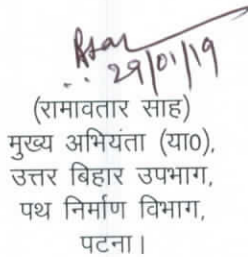 29/01/19
(रामावतार साह)
मुख्य अभियंता (या0),
उत्तर बिहार उपभाग,
पथ निर्माण विभाग,
पटना।